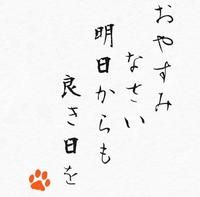 おやすみ
なさい
明日からも
良き日を